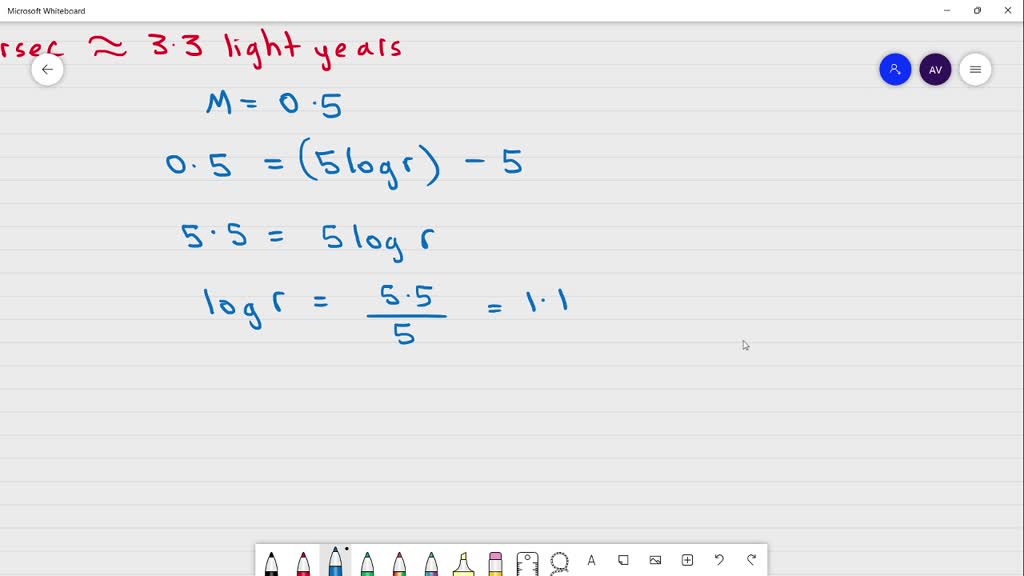 Microsoft Whiteboard
rsec ≈ 3.3 light years
AV
M = 0.5
0.5 = (5logr) - 5
5.5 = 5log r
log r = 5.5/5 = 1.1
A